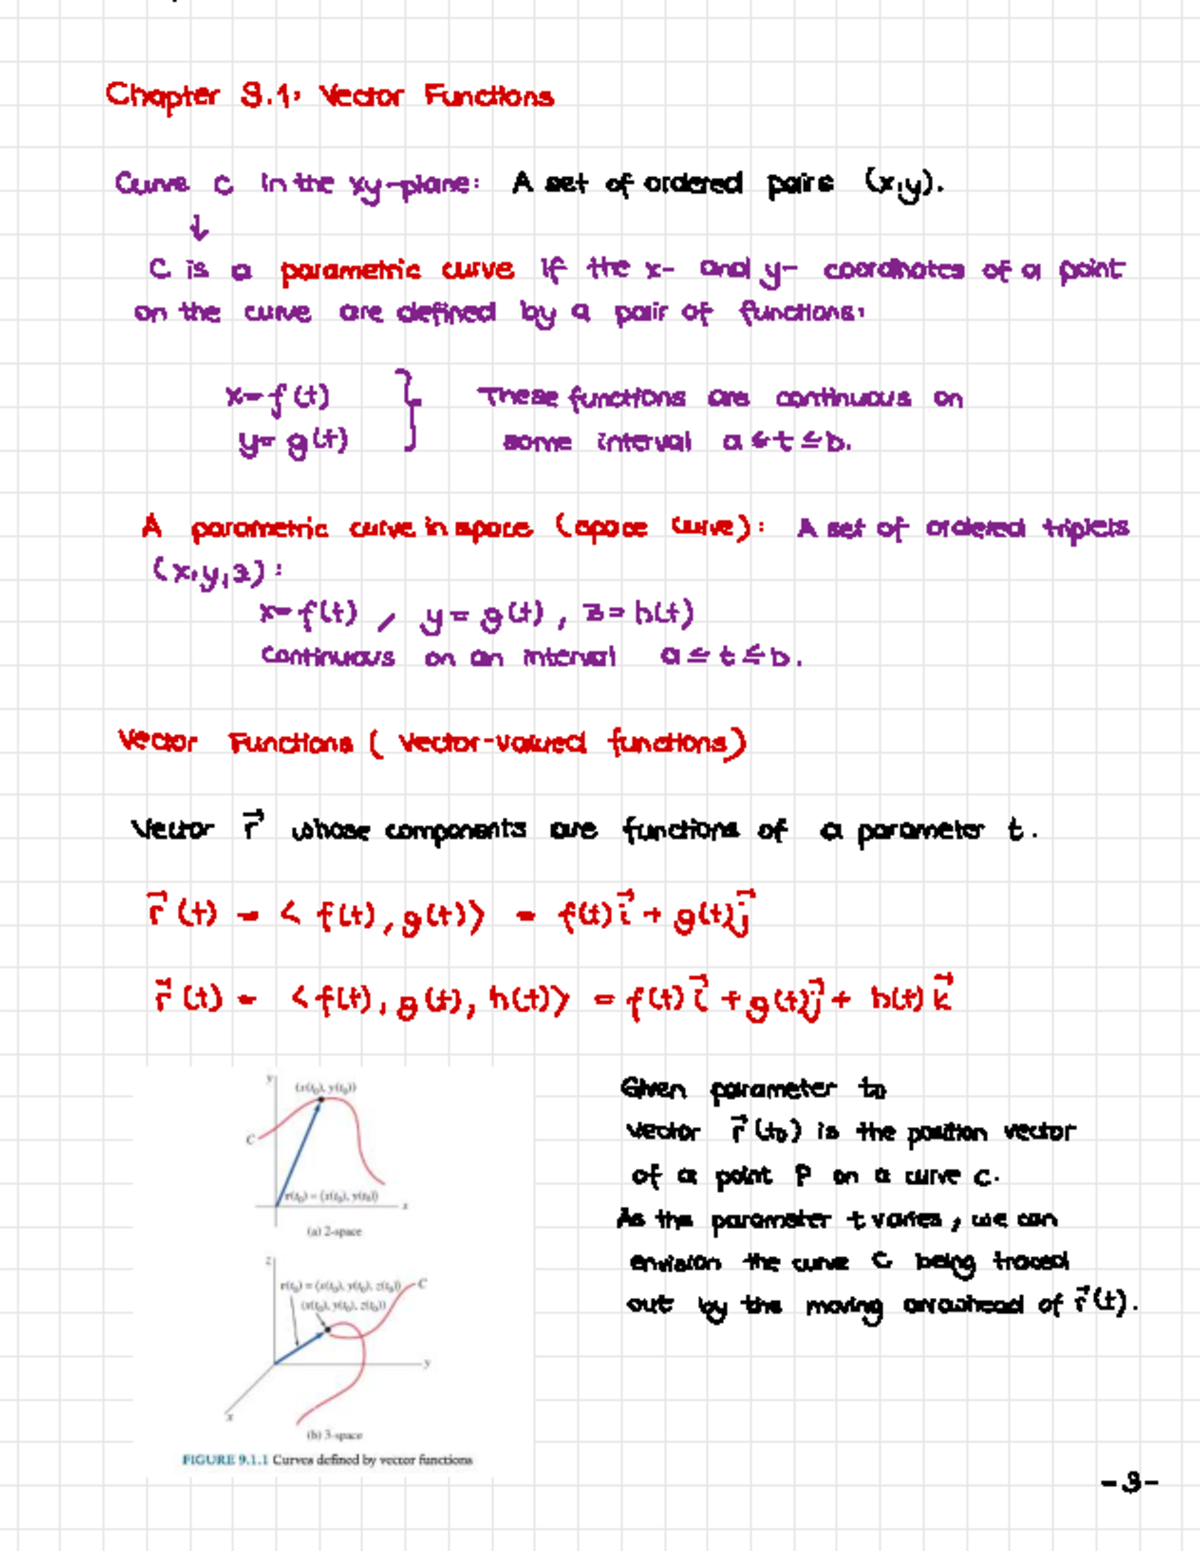 Chapter 9.1: Vector Functions
Curve C in the xy-plane: A set of ordered pairs (x,y).
↓
C is a parametric curve if the x- and y- coordinates of a point
on the curve are defined by a pair of functions:
x=f(t) } These functions are continuous on
y=g(t) some interval a≤t≤b.
A parametric curve in space (space curve): A set of ordered triplets
(x,y,z):
x=f(t), y=g(t), z=h(t)
continuous on an interval a≤t≤b.
Vector Functions (Vector-valued functions)
Vector r⃗ whose components are functions of a parameter t.
r⃗(t) = <f(t), g(t)> = f(t)i⃗ + g(t)j⃗
r⃗(t) = <f(t), g(t), h(t)> = f(t)i⃗ + g(t)j⃗ + h(t)k⃗
y
(x(t₀), y(t₀))
C
r(t₀) = ⟨x(t₀), y(t₀)⟩
x
(a) 2-space
z
r(t₀) = ⟨x(t₀), y(t₀), z(t₀)⟩ C
(x(t₀), y(t₀), z(t₀))
y
x
(b) 3-space
FIGURE 9.1.1 Curves defined by vector functions
Given parameter t₀
vector r⃗(t₀) is the position vector
of a point P on a curve C.
As the parameter t varies, we can
envision the curve C being traced
out by the moving arrowhead of r⃗(t).
-3-